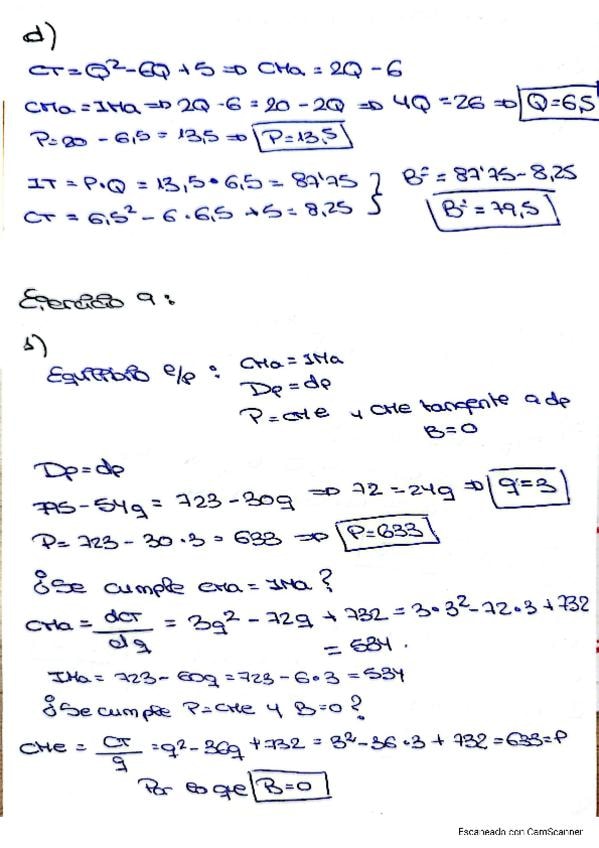 d)
CT = Q² - 6Q + 5 ⇒ CMa = 2Q - 6
CMa = IMa ⇒ 2Q - 6 = 20 - 2Q ⇒ 4Q = 26 ⇒ Q = 6,5
P = 20 - 6,5 = 13,5 ⇒ P = 13,5
IT = P·Q = 13,5 · 6,5 = 87'75 } Bº = 87'75 - 8,25
CT = 6,5² - 6 · 6,5 + 5 = 8,25 } Bº = 79,5
Ejercicio 9:
b)
Equilibrio e/p : CMa = IMa
Dp = dp
P = CMe y CMe tangente a dp
B = 0
Dp = dp
795 - 54q = 723 - 30q ⇒ 72 = 24q ⇒ q = 3
P = 723 - 30 · 3 = 633 ⇒ P = 633
¿Se cumple CMa = IMa?
CMa = dCT/dq = 3q² - 72q + 732 = 3 · 3² - 72 · 3 + 732
= 534.
IMa = 723 - 60q = 723 - 6 · 3 = 534
¿Se cumple P = CMe y B = 0?
CMe = CT/q = q² - 36q + 732 = 3² - 36 · 3 + 732 = 633 = P
Por lo que B = 0
Escaneado con CamScanner